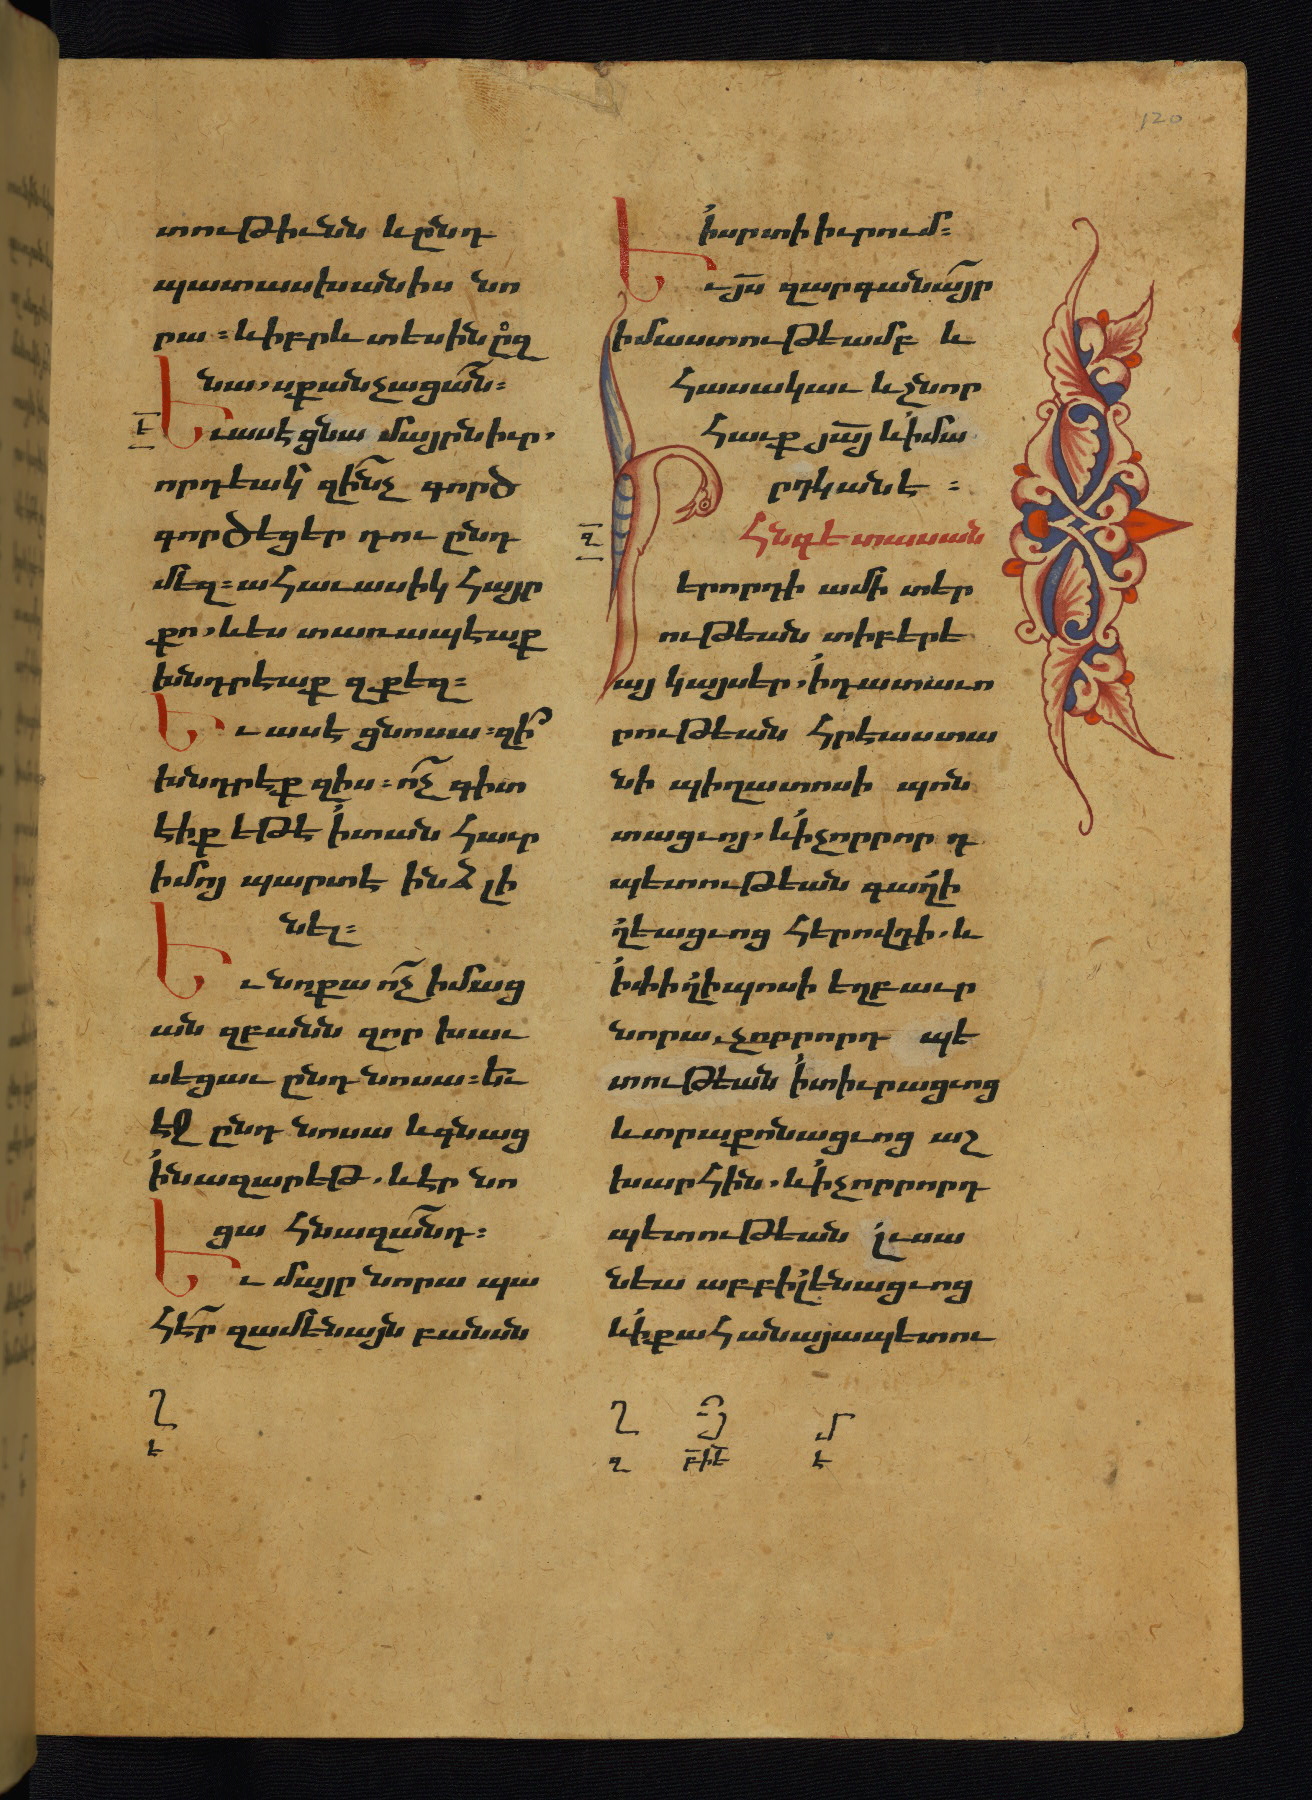 120
տութիւնն և ընդ
պատասխանիս նո
րա ։ և իբրև տեսին ըզ
նա, սքանչացան ։
Ե
ւ ասէ ցնա մայրն իւր,
որդեակ զինչ գործ
գործեցեր դու ընդ
մեզ ։ ահաւասիկ հայր
քո, և ես տառապեաք
խնդրեաք զքեզ ։
Եւ ասէ ցնոսա ։ զի՞
խնդրէք զիս ։ ոչ գիտ
էիք եթէ ի տան հաւր
իմոյ պարտէ ինձ լի
նել ։
Եւ նոքա ոչ իմաց
ան զբանն զոր խաւ
սեցաւ ընդ նոսա ։ Եւ
էջ ընդ նոսա և գնաց
ի նազարեթ, և էր նո
ցա հնազանդ ։
Եւ մայր նորա պա
հէր զամենայն բանսն
Ղ
ե
ի սրտի իւրում ։
Եւ յս զարգանայր
իմաստութեամբ և
հասակաւ և շնոր
հաւք յայ և ի մա
րդկանէ ։
Ի հնգետասան
երորդի ամի տէր
ութեան տիբերե
այ կայսեր, ի դատաւո
րութեան հրէաստա
նի պիղատոսի պոն
տացւոյ, և ի չորրոր դ
պետութեան գաղի
ղեացւոց հերովդի, և
ի փիղիպոսի եղբաւր
նորա, չորրորդ պե
տութեան ի տիւրացւոց
և տրաքոնացւոց աշ
խարհին, և ի չորրորդ
պետութեան լւսա
նեա աբբիլենացւոց
և ի քահանայապետու
Ղ
զ
Յ
բ իե
Մ
է